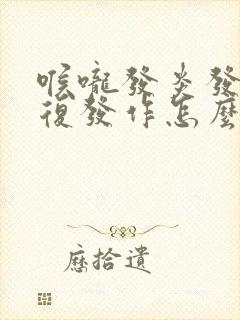 喉嚨發炎發
復發作怎麼
歷拾遺